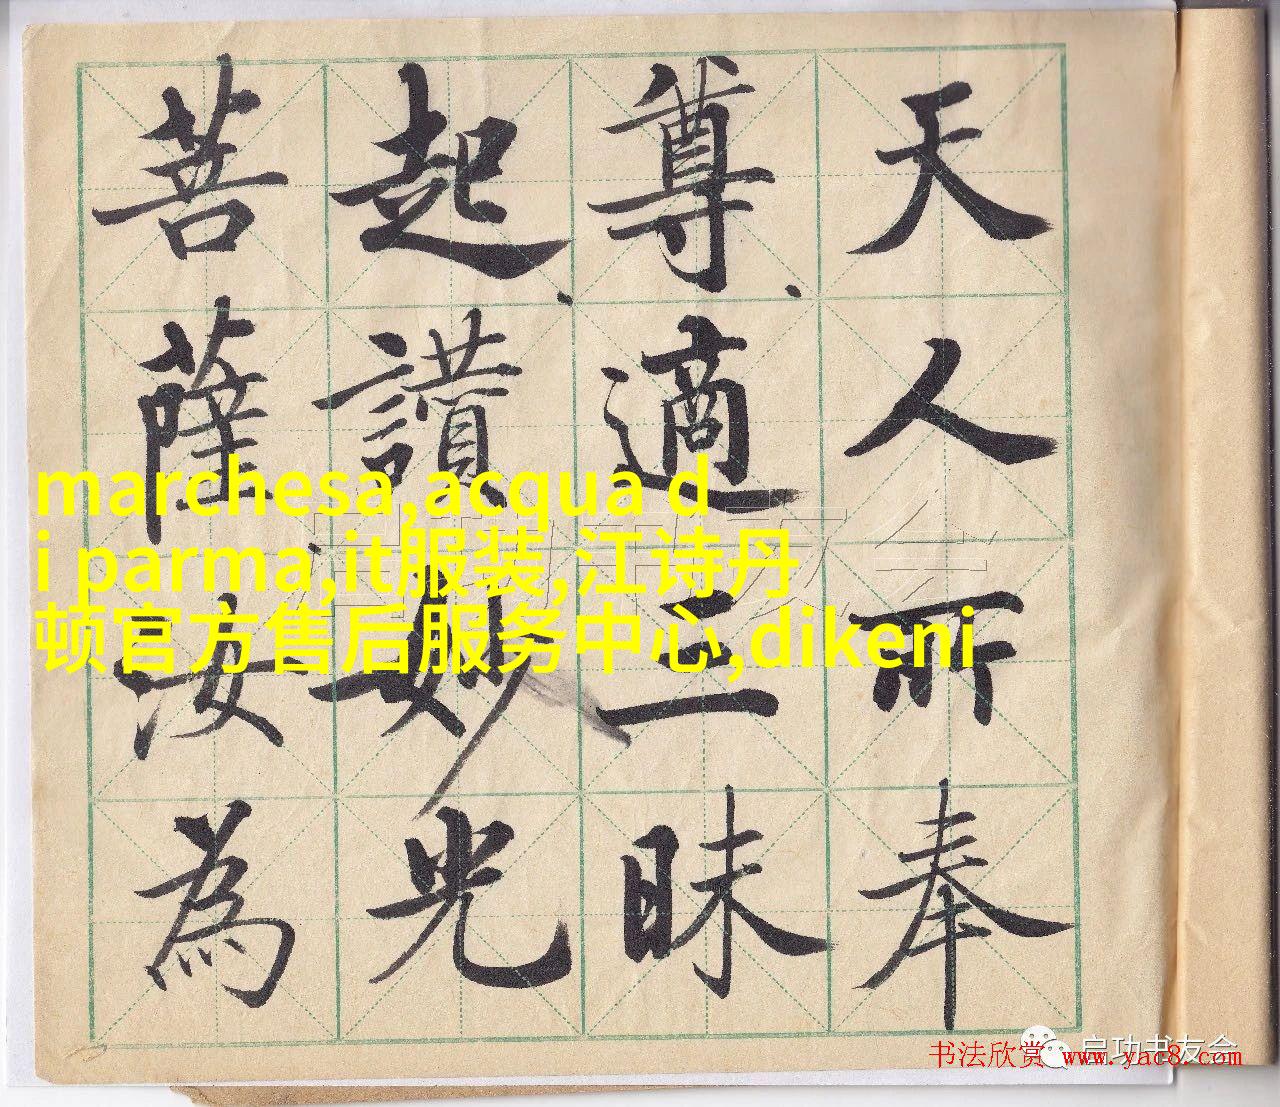 天人所奉
尊適三昧
起讚妙光
菩薩汝為
marchesa,acqua d
i parma,it服装,江诗丹
顿官方售后服务中心,dikeni
启功书友会
启功书友会
书法欣赏 www.yac8.com